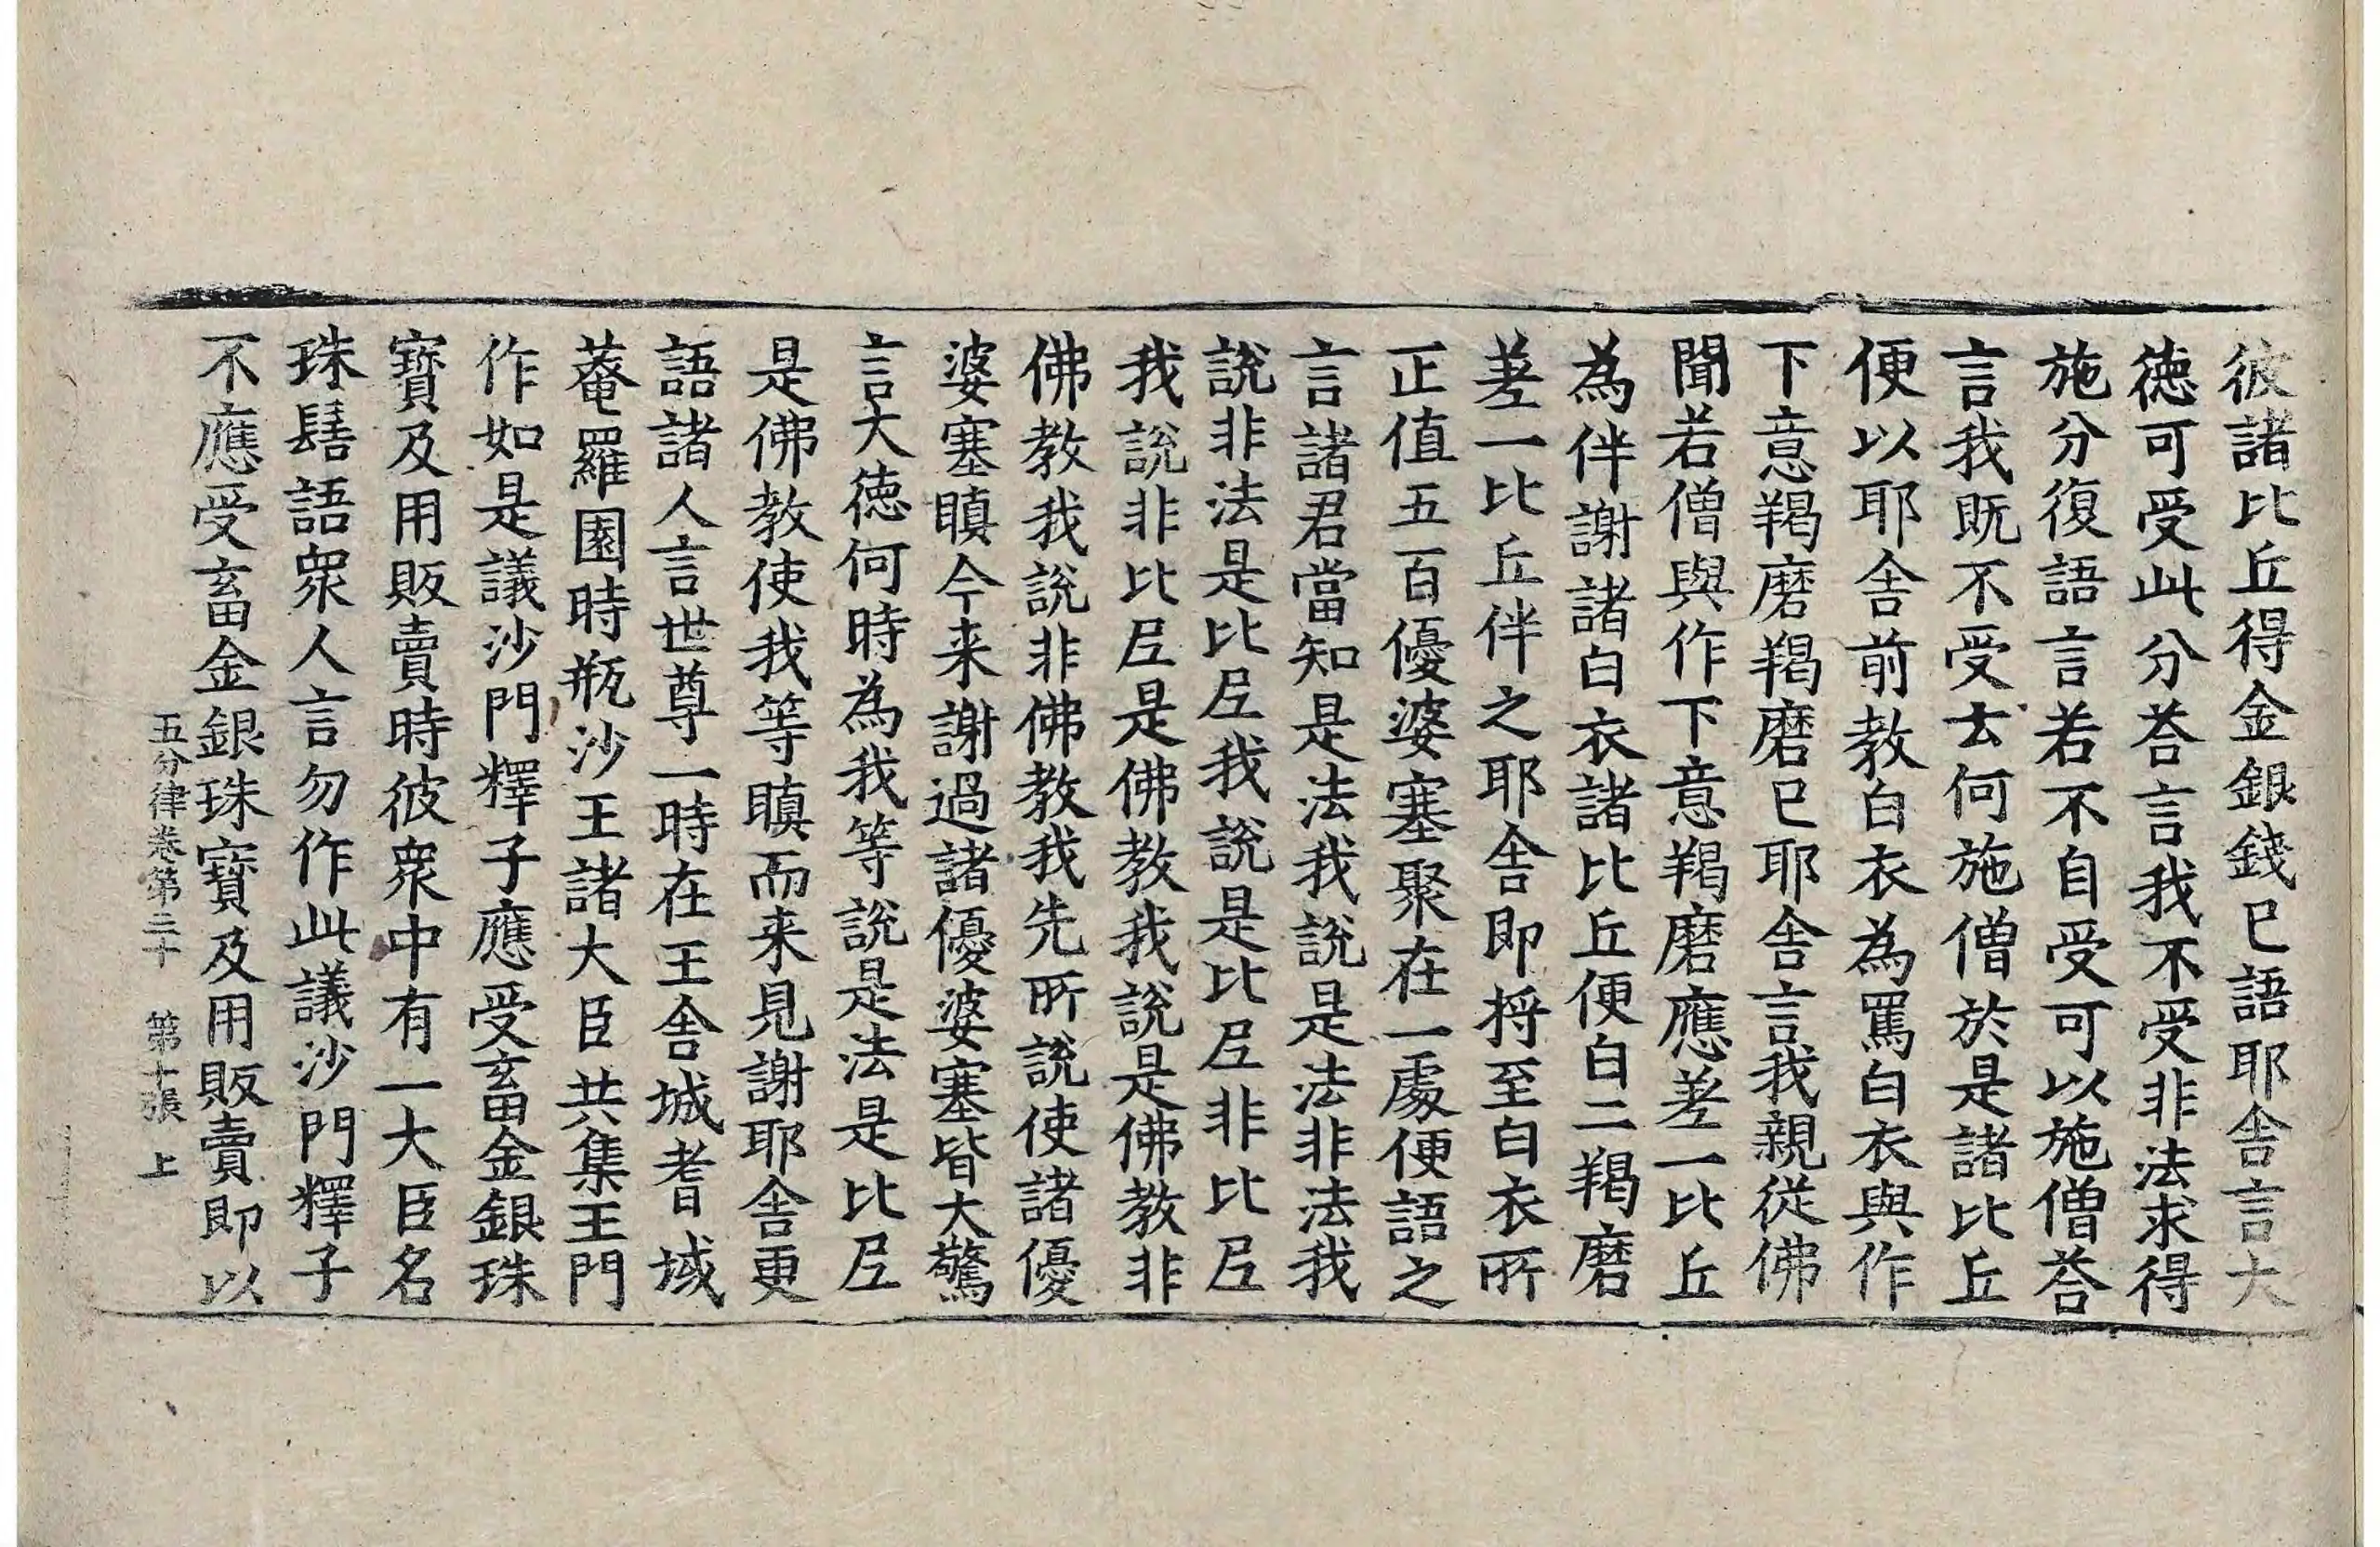 彼諸比丘得金銀錢已語耶舍言大
德可受此分荅言我不受非法求得
施分復語言若不自受可以施僧荅
言我既不受云何施僧於是諸比丘
便以耶舍前教白衣為罵白衣與作
下意羯磨羯磨已耶舍言我親從佛
聞若僧與作下意羯磨應差一比丘
為伴謝諸白衣諸比丘便白二羯磨
差一比丘伴之耶舍即将至白衣所
正值五百優婆塞聚在一處便語之
言諸君當知是法我說是法非法我
說非法是比尼我說是比尼非比尼
我說非比尼是佛教我說是佛教非
佛教我說非佛教我先所說使諸優
婆塞瞋今来謝過諸優婆塞皆大驚
言大德何時為我等說是法是比尼
是佛教使我等瞋而来見謝耶舍更
語諸人言世尊一時在王舍城耆域
菴羅園時瓶沙王諸大臣共集王門
作如是議沙門釋子應受畜金銀珠
寶及用販賣時彼衆中有一大臣名
珠髻語衆人言勿作此議沙門釋子
不應受畜金銀珠寶及用販賣即以
五分律卷第三十 第十張 上